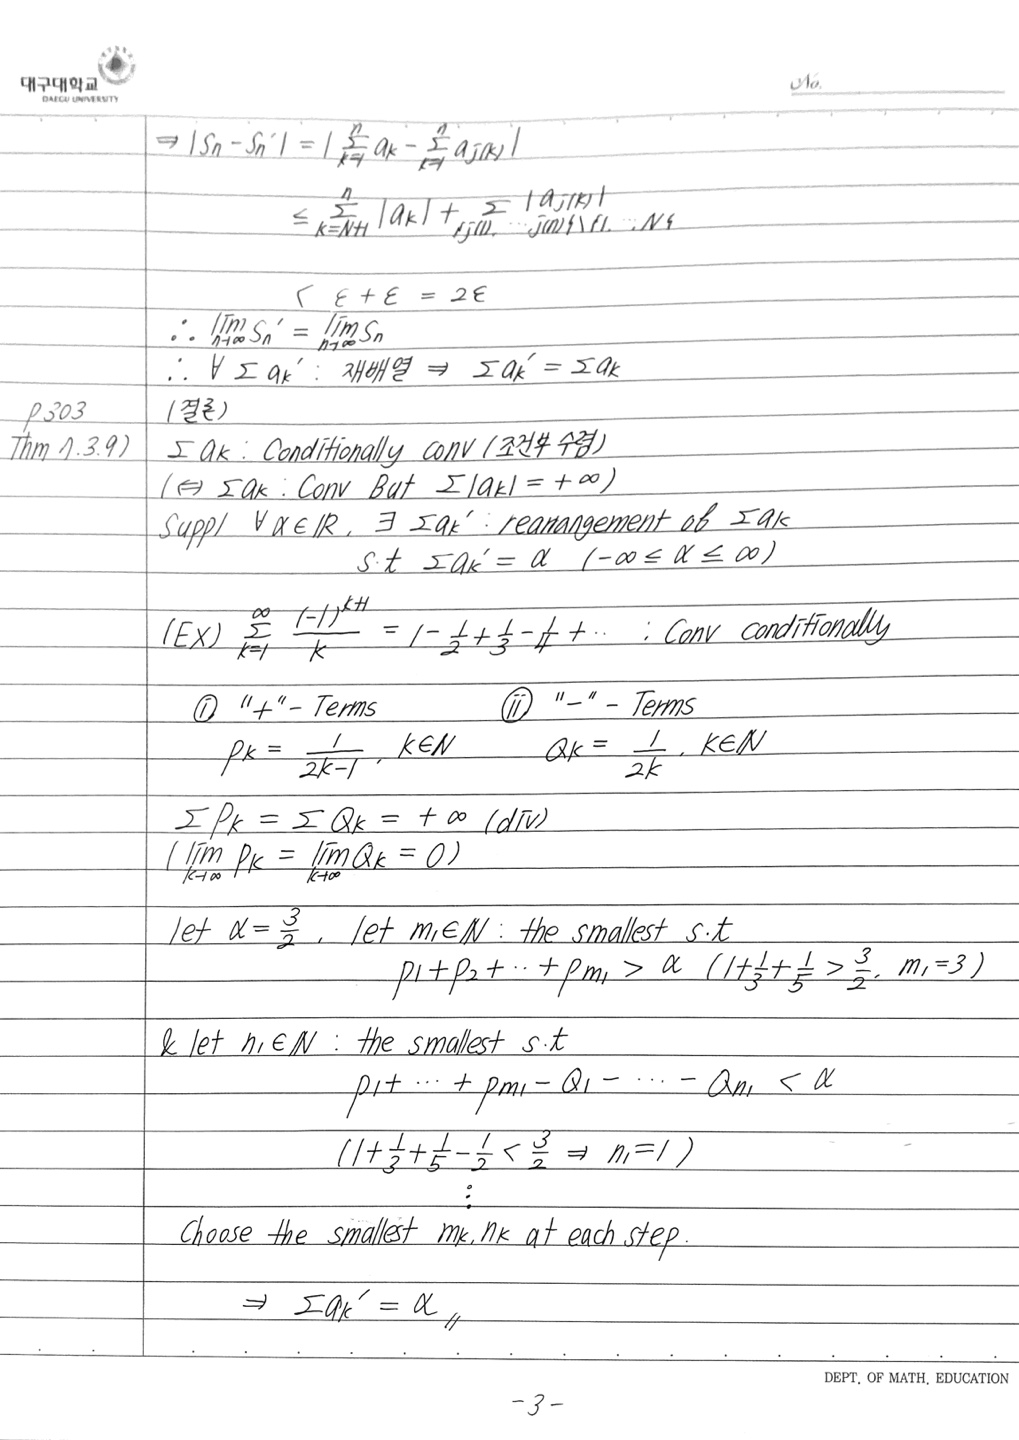 대구대학교
DAEGU UNIVERSITY
No.
⇒ |Sn - Sn'| = |∑_{k=1}^{n} ak - ∑_{k=1}^{n} aj(k)|
≤ ∑_{k=N+1}^{n} |ak| + ∑_{{j(1), ⋯ j(n)}\{1, ⋯, N}} |aj(k)|
< ε + ε = 2ε
∴ lim_{n→∞} Sn' = lim_{n→∞} Sn
∴ ∀ ∑ ak' : 재배열 ⇒ ∑ak' = ∑ak
P303 (결론)
Thm 7.3.9) ∑ ak : Conditionally conv (조건부 수렴)
(⇔ ∑ak : Conv But ∑|ak| = +∞)
Supp) ∀ α∈ℝ, ∃ ∑ak' : rearrangement of ∑ak
s.t ∑ak' = α (-∞ ≤ α ≤ ∞)
(Ex) ∑_{k=1}^{∞} (-1)^{k+1}/k = 1 - 1/2 + 1/3 - 1/4 + ⋯ : Conv conditionally
ⓘ "+" - Terms ⓘⓘ "-" - Terms
Pk = 1/(2k-1), k∈ℕ Qk = 1/2k, k∈ℕ
∑ Pk = ∑ Qk = +∞ (div)
(lim_{k→∞} Pk = lim_{k→∞} Qk = 0)
let α = 3/2, let m₁∈ℕ : the smallest s.t
P1 + P2 + ⋯ + Pm₁ > α (1 + 1/3 + 1/5 > 3/2, m₁ = 3)
& let n₁∈ℕ : the smallest s.t
P1 + ⋯ + Pm₁ - Q1 - ⋯ - Qn₁ < α
(1 + 1/3 + 1/5 - 1/2 < 3/2 ⇒ n₁ = 1)
⋮
Choose the smallest mk, nk at each step.
⇒ ∑ak' = α //
DEPT. OF MATH. EDUCATION
-3-